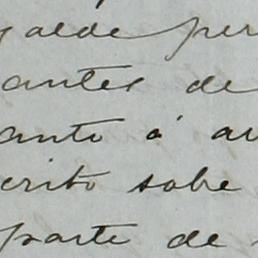 alde per
antes de
anto á au
erito sobre
parte de